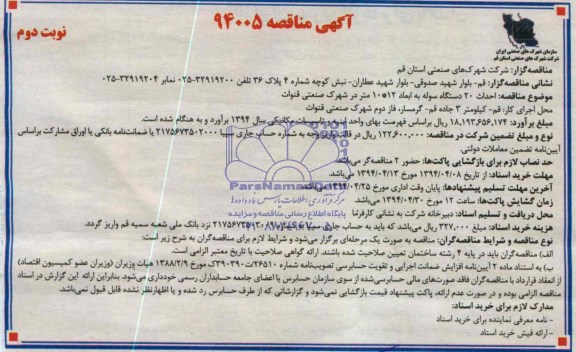 آگهی مناقصه ۹۴۰۰۵
نوبت دوم
سازمان شهرک های صنعتی ایران
شرکت شهرک های صنعتی استان قم
مناقصه‌گزار: شرکت شهرک‌های صنعتی استان قم
نشانی مناقصه‌گزار: قم- بلوار شهید صدوقی- بلوار شهید عطاران- نبش کوچه شماره ۴ پلاک ۳۶ تلفن ۳۲۹۱۹۲۰۰-۰۲۵ نمابر ۳۲۹۱۹۲۰۴-۰۲۵
موضوع مناقصه: احداث ۲۰ دستگاه سوله به ابعاد ۱۲*۱۰ متر در شهرک صنعتی قنوات
محل اجرای کار: قم- کیلومتر ۳ جاده قم- گرمسار، فاز دوم شهرک صنعتی قنوات
مبلغ برآورد: ۱۸,۱۹۳,۶۵۶,۱۷۴ ریال براساس فهرست بهای واحد ابنیه و تاسیسات مکانیکی سال ۱۳۹۴ برآورد و به هنگام شده است.
نوع و مبلغ تضمین شرکت در مناقصه: ۱۲۲,۶۰۰,۰۰۰ ریال در قالب واریز وجه به شماره حساب جاری سیبا ۲۱۷۵۶۷۳۵۰۲۰۰۰ یا ضمانت‌نامه بانکی یا اوراق مشارکت براساس
آیین‌نامه تضمین معاملات دولتی.
حد نصاب لازم برای بازگشایی پاکت‌ها: حضور ۲ مناقصه‌گر می‌باشد.
مهلت خرید اسناد: از تاریخ ۱۳۹۴/۰۴/۰۸ مورخ ۱۳۹۴/۰۴/۱۳ می‌باشد.
آخرین مهلت تسلیم پیشنهادها: پایان وقت اداری مورخ ۱۳۹۴/۰۴/۲۵ می‌باشد.
زمان گشایش پاکت‌ها: ساعت ۱۲ مورخ ۱۳۹۴/۰۴/۳۰ می‌باشد.
محل دریافت و تسلیم اسناد: دبیرخانه شرکت به نشانی کارفرما
هزینه خرید اسناد: مبلغ ۳۲۷,۰۰۰ ریال می‌باشد که باید به حساب جاری سیبا نزد بانک ملی شعبه سمیه قم واریز گردد.
نوع مناقصه و شرایط مناقصه‌گران: مناقصه به صورت یک مرحله‌ای برگزار می‌شود و شرایط لازم برای مناقصه‌گران به شرح زیر است:
الف) مناقصه‌گران باید در پایه ۴ رشته ساختمان تعیین صلاحیت شده باشند. ارائه گواهی صلاحیت با تاریخ معتبر الزامی است.
ب) به استناد ماده ۲ آیین‌نامه افزایش ضمانت اجرایی و تقویت حسابرسی تصویب‌نامه شماره ۲۶۵۱۰/ت۳۹۰۳۹ک مورخ ۱۳۸۸/۲/۹ هیأت وزیران (وزیران عضو کمیسیون اقتصاد)
از انعقاد قرارداد با مناقصه‌گران فاقد صورت‌های مالی حسابرسی‌شده از سوی سازمان حسابرس یا اعضای جامعه حسابداران رسمی خودداری می‌شود. بنابراین ارائه این گزارش در اسناد
مناقصه الزامی بوده و در صورت عدم ارائه، پاکت پیشنهاد قیمت بازگشایی نمی‌شود و گزارشاتی که از طرف حسابرس رد شده و یا اظهارنظر نشده قابل قبول نمی‌باشد.
مدارک لازم برای خرید اسناد:
- نامه معرفی نماینده برای خرید اسناد
- ارائه فیش خرید اسناد
ParsNamadData
مرکز فرآوری اطلاعات پارس نماد داده‌ها
پایگاه اطلاع رسانی مناقصه و مزایده